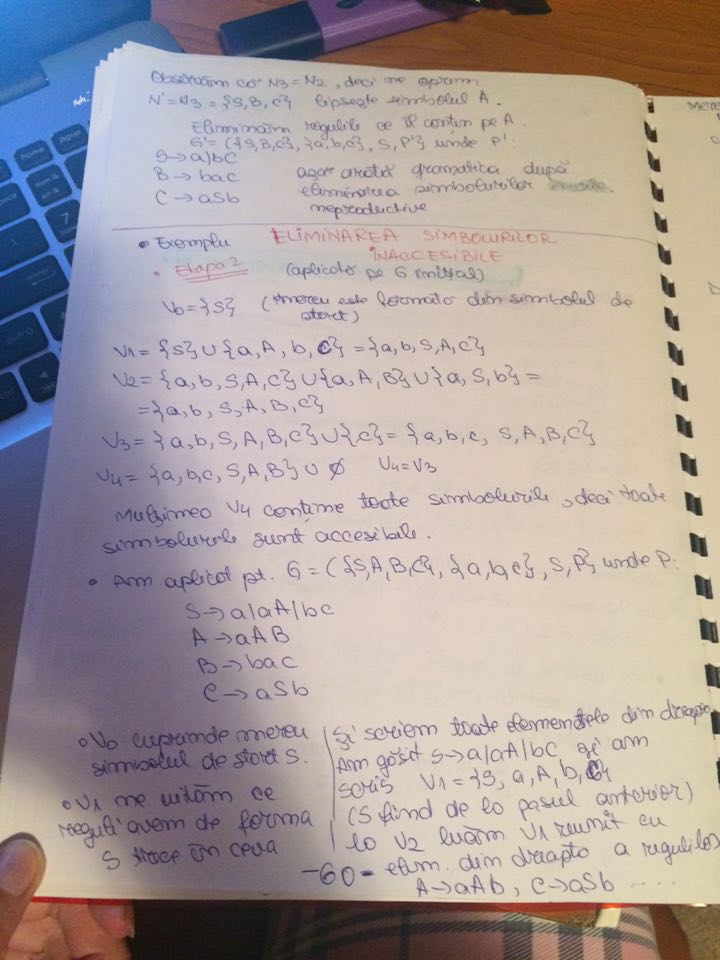 Observăm că N3 = N2, deci ne oprim
N' = N3 = {S, B, C} lipsește simbolul A.
Eliminăm regulile ce îl conțin pe A
G' = ({S, B, C}, {a, b, c}, S, P'} unde P':
S → a/bC
B → bac așa arată gramatica după
C → aSb eliminarea simbolurilor
neproductive
• Exemplu ELIMINAREA SIMBOLURILOR
INACCESIBILE
• Etapa 2 (aplicată pe G inițial)
V0 = {S} (mereu este formată din simbolul de
start)
V1 = {S} ∪ {a, A, b, C} = {a, b, S, A, C}
V2 = {a, b, S, A, C} ∪ {a, A, B} ∪ {a, S, b} =
= {a, b, S, A, B, C}
V3 = {a, b, S, A, B, C} ∪ {c} = {a, b, c, S, A, B, C}
V4 = {a, b, c, S, A, B} ∪ ∅ V4 = V3
Mulțimea V4 conține toate simbolurile, deci toate
simbolurile sunt accesibile.
• Am aplicat pt. G = ({S, A, B, C}, {a, b, c}, S, P} unde P:
S → a/aA/bC
A → aAB
B → bac
C → aSb
• V0 cuprinde mereu
simbolul de start S.
• V1 ne uităm ce
reguli avem de forma
S trece în ceva
Și scriem toate elementele din dreapta
Am găsit S → a/aA/bC și am
scris V1 = {S, a, A, b, C}
(S fiind de la pasul anterior)
la V2 luăm V1 reunit cu
elem. din dreapta a regulilor
A → aAb, C → aSb ....
-60-
home
pgup
enter
shift
ctrl